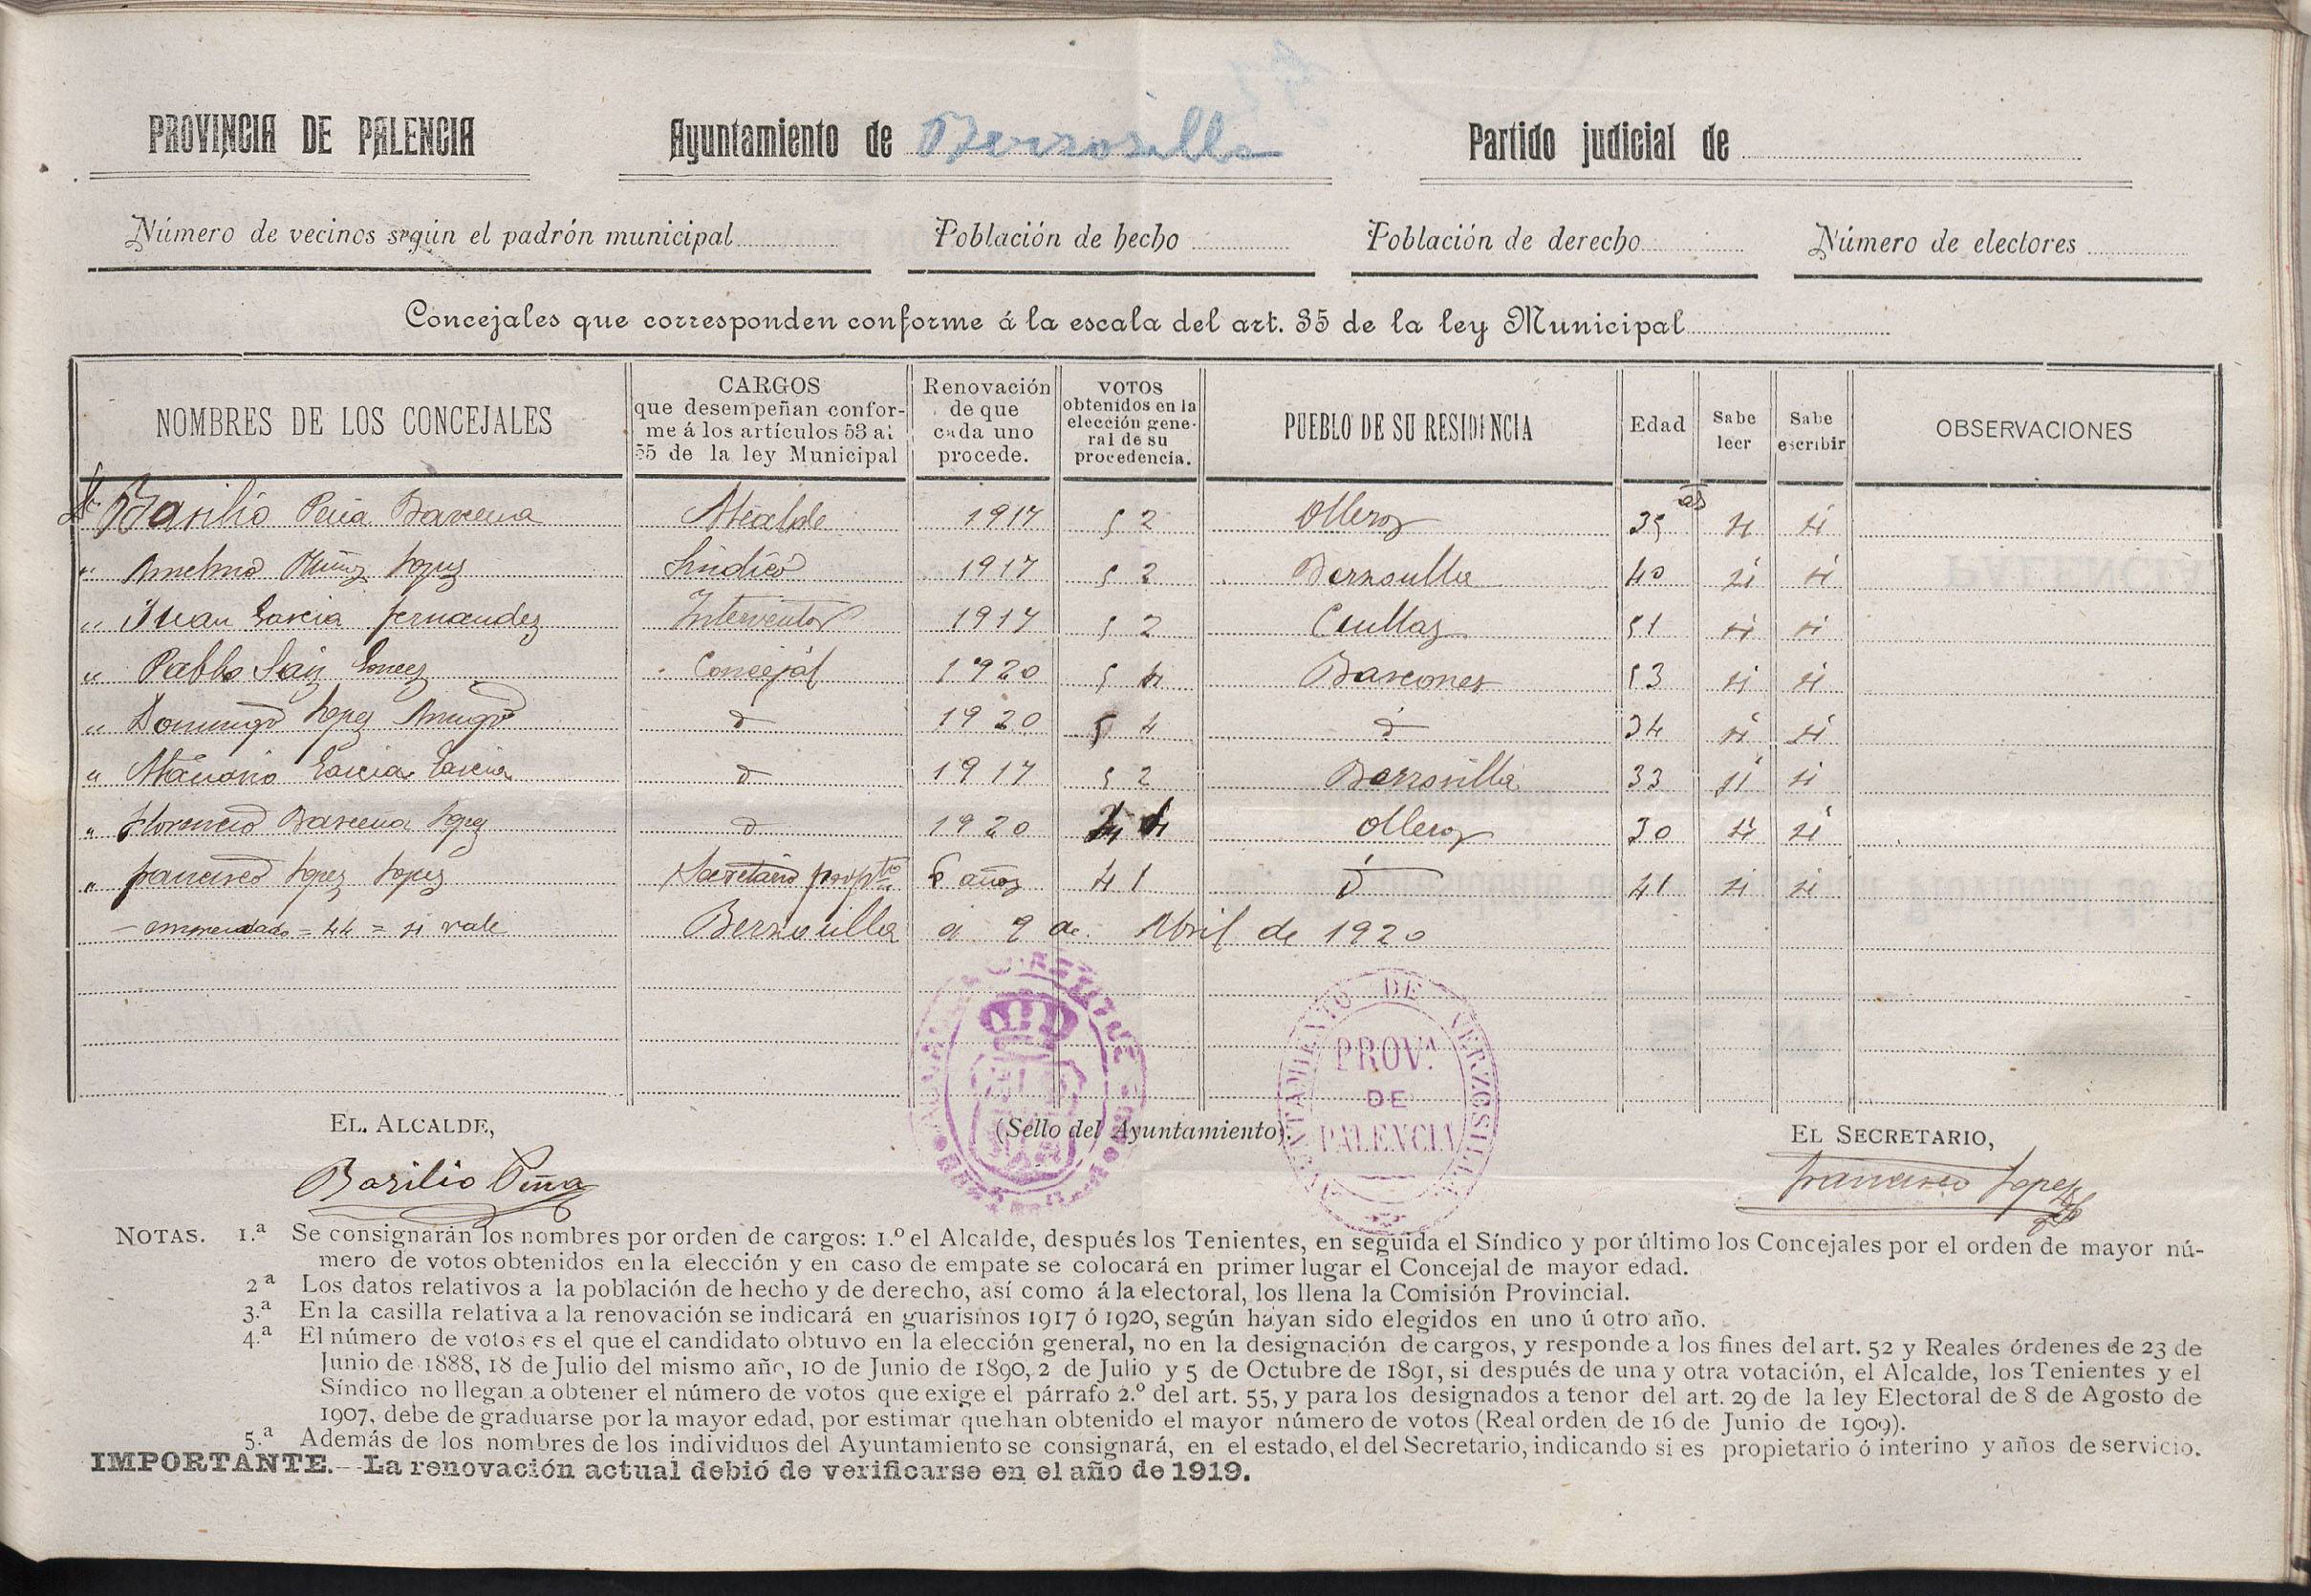 PROVINCIA DE PALENCIA Ayuntamiento de Berzosilla Partido judicial de
Número de vecinos según el padrón municipal Población de hecho Población de derecho Número de electores
Concejales que corresponden conforme á la escala del art. 35 de la ley Municipal
NOMBRES DE LOS CONCEJALES
CARGOS
que desempeñan confor-
me á los artículos 53 al
55 de la ley Municipal
Renovación
de que
cada uno
procede.
VOTOS
obtenidos en la
elección gene-
ral de su
procedencia.
PUEBLO DE SU RESIDENCIA
Edad
Sabe
leer
Sabe
escribir
OBSERVACIONES
Dn Basilio Peña Barcena Alcalde 1917 52 Olleros 35 as si si
" Anselmo Muñoz Lopez Sindico 1917 52 Berzosilla 40 si si
" Juan Garcia Fernandez Interventor 1917 52 Cuillas 51 si si
" Pablo Saiz Gomez Concejal 1920 54 Bascones 53 si si
" Domingo Lopez Amigo d 1920 54 d 34 si si
" Macario Garcia Garcia d 1917 52 Berzosilla 33 si si
" Florencio Barcena Lopez d 1920 44 Olleros 30 si si
" Francisco Lopez Lopez Secretario 6 años 41 d 41 si si
- enmendado = 44 = si vale Berzosilla a 9 de Abril de 1920
AYUNTAMIENTO DE VERZOSILLA
PROV.A
DE
PALENCIA
EL ALCALDE, (Sello del Ayuntamiento). EL SECRETARIO,
Basilio Peña Francisco Lopez
NOTAS. 1.ª Se consignarán los nombres por orden de cargos: 1.º el Alcalde, después los Tenientes, en seguida el Síndico y por último los Concejales por el orden de mayor nú-
mero de votos obtenidos en la elección y en caso de empate se colocará en primer lugar el Concejal de mayor edad.
2ª Los datos relativos a la población de hecho y de derecho, así como á la electoral, los llena la Comisión Provincial.
3.ª En la casilla relativa a la renovación se indicará en guarismos 1917 ó 1920, según hayan sido elegidos en uno ú otro año.
4.ª El número de votos es el que el candidato obtuvo en la elección general, no en la designación de cargos, y responde a los fines del art. 52 y Reales órdenes de 23 de
Junio de 1888, 18 de Julio del mismo año, 10 de Junio de 1890, 2 de Julio y 5 de Octubre de 1891, si después de una y otra votación, el Alcalde, los Tenientes y el
Síndico no llegan a obtener el número de votos que exige el párrafo 2.º del art. 55, y para los designados a tenor del art. 29 de la ley Electoral de 8 de Agosto de
1907, debe de graduarse por la mayor edad, por estimar que han obtenido el mayor número de votos (Real orden de 16 de Junio de 1909).
5.ª Además de los nombres de los individuos del Ayuntamiento se consignará, en el estado, el del Secretario, indicando si es propietario ó interino y años de servicio.
IMPORTANTE.—La renovación actual debió de verificarse en el año de 1919.